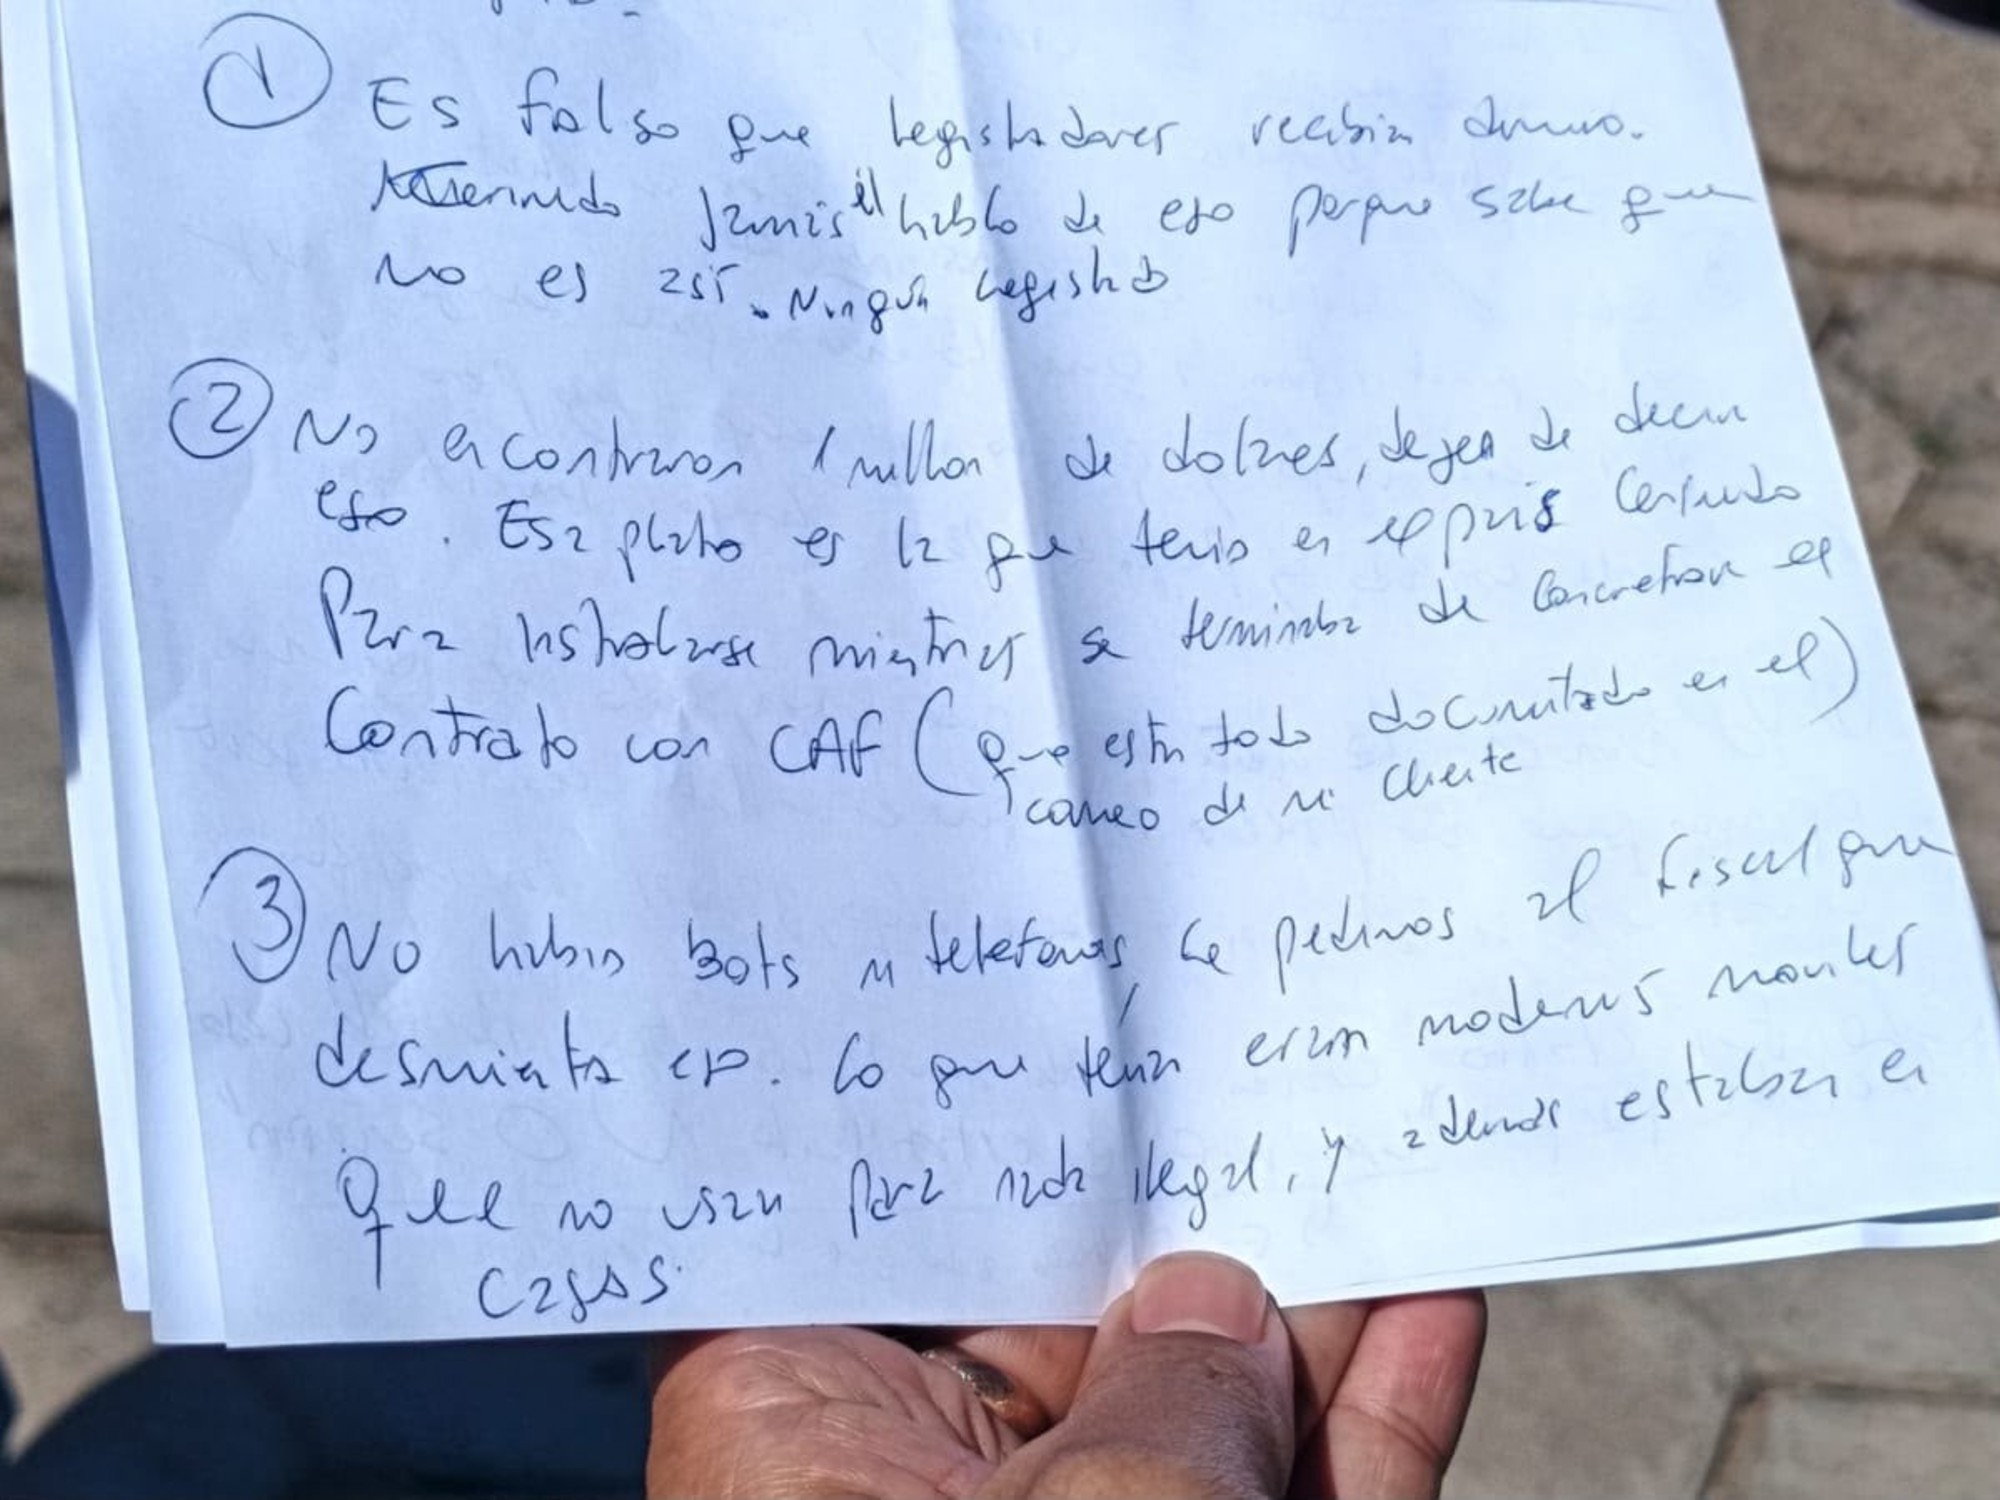 ① Es falso que legisladores recibian dinero.
jamás él hablo de eso porque sabe que
no es así. Ningún legislad
② No encontraron 1 millon de dolares, dejen de decir
eso. Esa plata es la que tenia en el pais
Para instalarse mientras se terminaba de concretar el
Contrato con CAF (que esta todo documentado en el)
correo de mi cliente
③ No habia Bots ni telefonos, le pedimos al fiscal que
desmienta eso. Lo que tenia eran modems moviles
Que no usan para nada ilegal, y además estaban en
cajas.